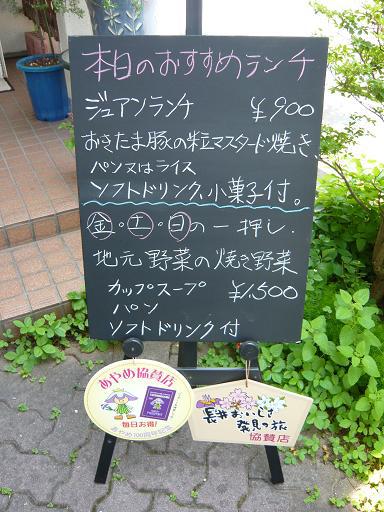 本日のおすすめランチ
ジュアンランチ ¥900
おきたま豚の粒マスタード焼き
パン又はライス
ソフトドリンク、小菓子付。
金・土・日の一押し.
地元野菜の焼き野菜
カップスープ ¥1,500
パン
ソフトドリンク付
あやめ協賛店
毎日お得!
あやめ100周年記念
長井おいしさ
発見の旅
協賛店